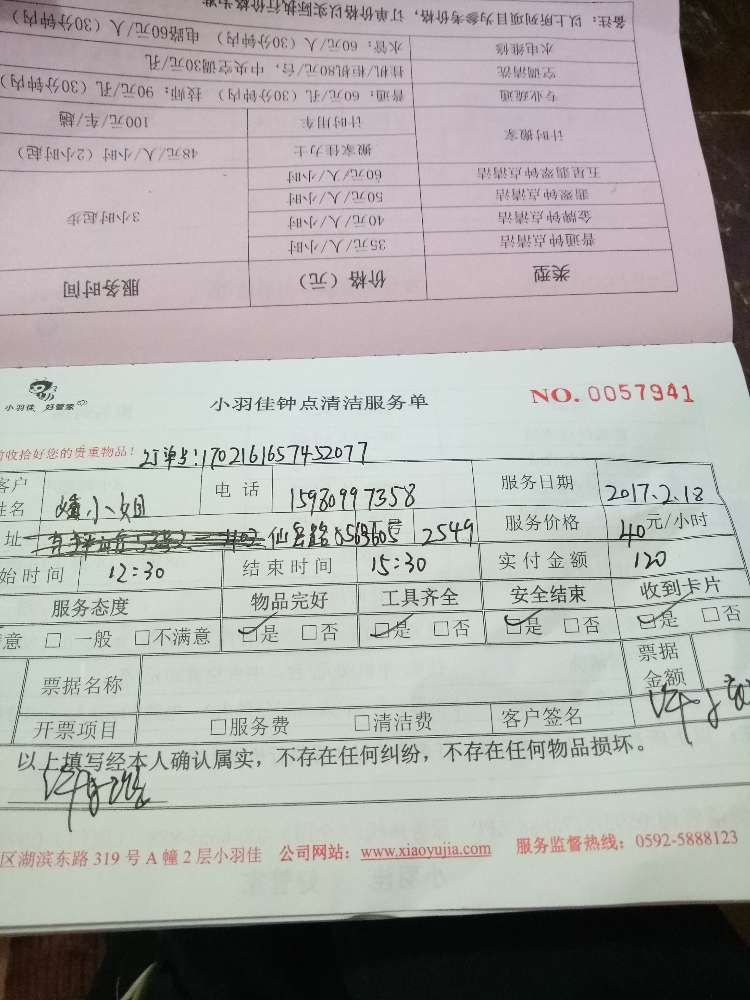 备注：以上所列项目为参考价格，订单价格以实际执行价格为准
水电维修 水管：60元/人（30分钟内） 电路60元/人（30分钟内）
空调清洗 挂机/柜机80元/台，中央空调30元/孔
专业疏通 普通：60元/孔（30分钟内） 技师：90元/孔（30分钟内）
计时搬家 计时用车 100元/车/趟
搬家佳力士 48元/人/小时（2小时起）
五星翡翠钟点清洁 60元/人/小时
翡翠钟点清洁 50元/人/小时
金牌钟点清洁 40元/人/小时 3小时起步
普通钟点清洁 35元/人/小时
类型 价格（元） 服务时间
小羽佳 好管家
小羽佳钟点清洁服务单 NO. 0057941
收拾好您的贵重物品！ 订单号：1702161657452077
客户姓名 小姐 电话 15980997358 服务日期 2017.2.18
址 仙岳路 2549 服务价格 40元/小时
始时间 12:30 结束时间 15:30 实付金额 120
服务态度 物品完好 工具齐全 安全结束 收到卡片
意 □一般 □不满意 □是 □否 □是 □否 □是 □否 □是 □否
票据名称 票据金额
开票项目 □服务费 □清洁费 客户签名
以上填写经本人确认属实，不存在任何纠纷，不存在任何物品损坏。
区湖滨东路 319 号 A 幢 2 层小羽佳 公司网站：www.xiaoyujia.com 服务监督热线：0592-5888123